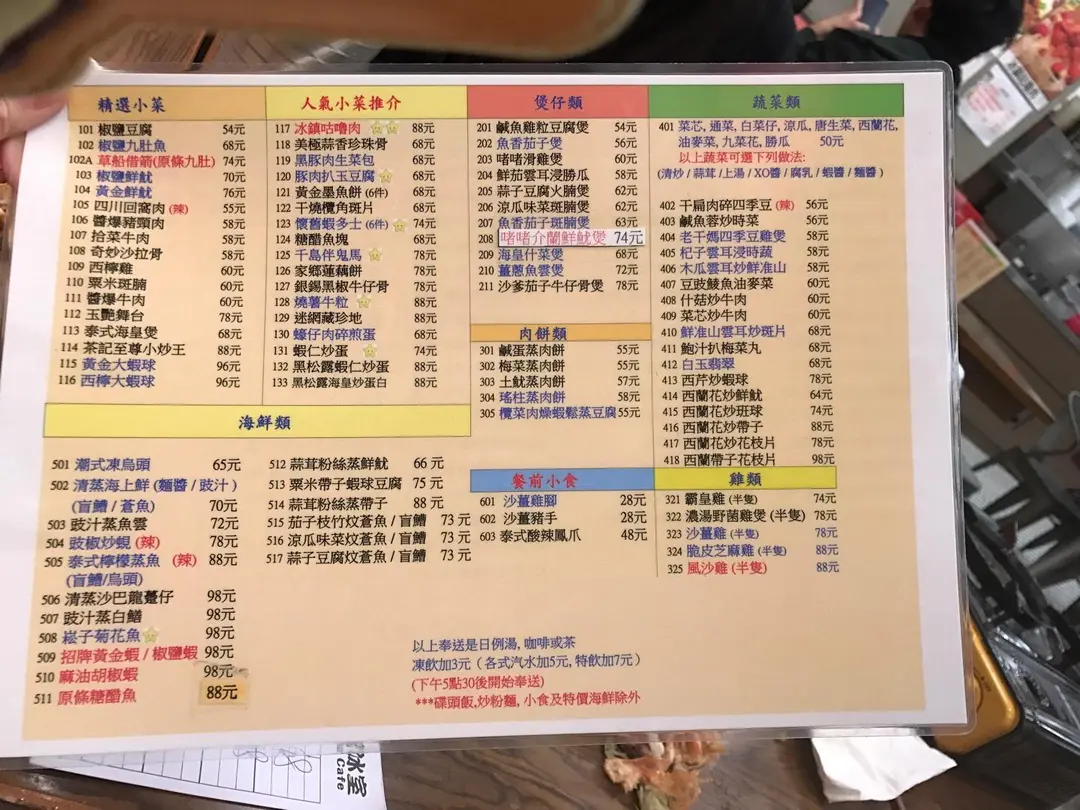 精選小菜
101 椒鹽豆腐 54元
102 椒鹽九肚魚 68元
102A 草船借箭(原條九肚) 74元
103 椒鹽鮮魷 70元
104 黃金鮮魷 76元
105 四川回窩肉 (辣) 55元
106 醬爆豬頸肉 58元
107 拾菜牛肉 58元
108 奇妙沙拉骨 58元
109 西檸雞 60元
110 粟米斑腩 60元
111 醬爆牛肉 60元
112 玉艷舞台 78元
113 泰式海皇煲 68元
114 茶記至尊小炒王 88元
115 黃金大蝦球 96元
116 西檸大蝦球 96元
人氣小菜推介
117 冰鎮咕嚕肉 88元
118 美極蒜香珍珠骨 60元
119 黑豚肉生菜包 68元
120 豚肉扒玉豆腐 70元
121 黃金墨魚餅 (6件) 68元
122 干燒欖角斑片 68元
123 懷舊蝦多士 (6件) 74元
124 糖醋魚塊 68元
125 千島伴鬼馬 78元
126 家鄉蓮藕餅 78元
127 銀錫黑椒牛仔骨 78元
128 燒薯牛粒 88元
129 迷網藏珍地 88元
130 蠔仔肉碎煎蛋 68元
131 蝦仁炒蛋 74元
132 黑松露蝦仁炒蛋 88元
133 黑松露海皇炒蛋白 88元
煲仔類
201 鹹魚雞粒豆腐煲 54元
202 魚香茄子煲 56元
203 啫啫滑雞煲 60元
204 鮮茄雲耳浸勝瓜 58元
205 蒜子豆腐火腩煲 62元
206 涼瓜味菜斑腩煲 62元
207 魚香茄子斑腩煲 63元
208 啫啫介蘭鮮魷煲 74元
209 海皇什菜煲 68元
210 薑蔥魚雲煲 72元
211 沙爹茄子牛仔骨煲 78元
肉餅類
301 鹹蛋蒸肉餅 55元
302 梅菜蒸肉餅 55元
303 土魷蒸肉餅 57元
304 瑤柱蒸肉餅 58元
305 欖菜肉燥蝦鬆蒸豆腐 55元
蔬菜類
401 菜芯, 通菜, 白菜仔, 涼瓜, 唐生菜, 西蘭花,
油麥菜, 九菜花, 勝瓜 50元
以上蔬菜可選下列做法:
(清炒 / 蒜茸 / 上湯 / XO醬 / 腐乳 / 蝦醬 / 麵醬 )
402 干扁肉碎四季豆 (辣) 56元
403 鹹魚蓉炒時菜 58元
404 老干媽四季豆雞煲 58元
405 杞子雲耳浸時蔬 58元
406 木瓜雲耳炒鮮准山 58元
407 豆豉鯪魚油麥菜 60元
408 什菇炒牛肉 60元
409 菜芯炒牛肉 60元
410 鮮准山雲耳炒斑片 68元
411 鮑汁扒梅菜丸 68元
412 白玉翡翠 68元
413 西芹炒蝦球 78元
414 西蘭花炒鮮魷 64元
415 西蘭花炒班球 74元
416 西蘭花炒帶子 88元
417 西蘭花炒花枝片 78元
418 西蘭帶子花枝片 98元
海鮮類
501 潮式凍烏頭 65元
502 清蒸海上鮮 (麵醬 / 豉汁 )
(盲鰽 / 蒼魚) 70元
503 豉汁蒸魚雲 72元
504 豉椒炒蜆 (辣) 78元
505 泰式檸檬蒸魚 (辣) 88元
(盲鰽/烏頭)
506 清蒸沙巴龍躉仔 98元
507 豉汁蒸白鱔 98元
508 崧子菊花魚 98元
509 招牌黃金蝦 / 椒鹽蝦 98元
510 麻油胡椒蝦 98元
511 原條糖醋魚 88元
512 蒜茸粉絲蒸鮮魷 66 元
513 粟米帶子蝦球豆腐 75 元
514 蒜茸粉絲蒸帶子 88 元
515 茄子枝竹炆蒼魚 / 盲鰽 73 元
516 涼瓜味菜炆蒼魚 / 盲鰽 73 元
517 蒜子豆腐炆蒼魚 / 盲鰽 73 元
餐前小食
601 沙薑雞腳 28元
602 沙薑豬手 28元
603 泰式酸辣鳳爪 48元
雞類
321 霸皇雞 (半隻) 74元
322 濃湯野菌雞煲 (半隻) 78元
323 沙薑雞 (半隻) 78元
324 脆皮芝麻雞 (半隻) 88元
325 風沙雞 (半隻) 88元
以上奉送是日例湯, 咖啡或茶
凍飲加3元 ( 各式汽水加5元, 特飲加7元 )
(下午5點30後開始奉送)
***碟頭飯,炒粉麵, 小食及特價海鮮除外
冰室
Cafe